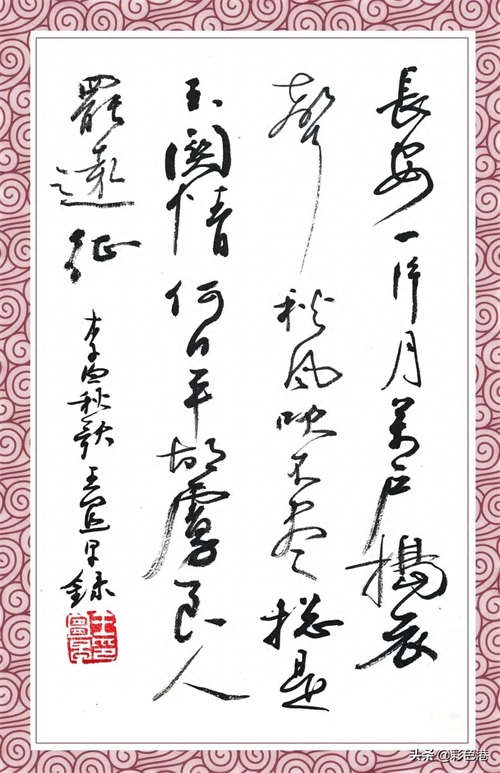 長安一片月萬户搗衣
聲秋風吹不盡總是
玉關情何日平胡虜良人
罷遠征
李白秋歌 王宜早録
头条@彩色港